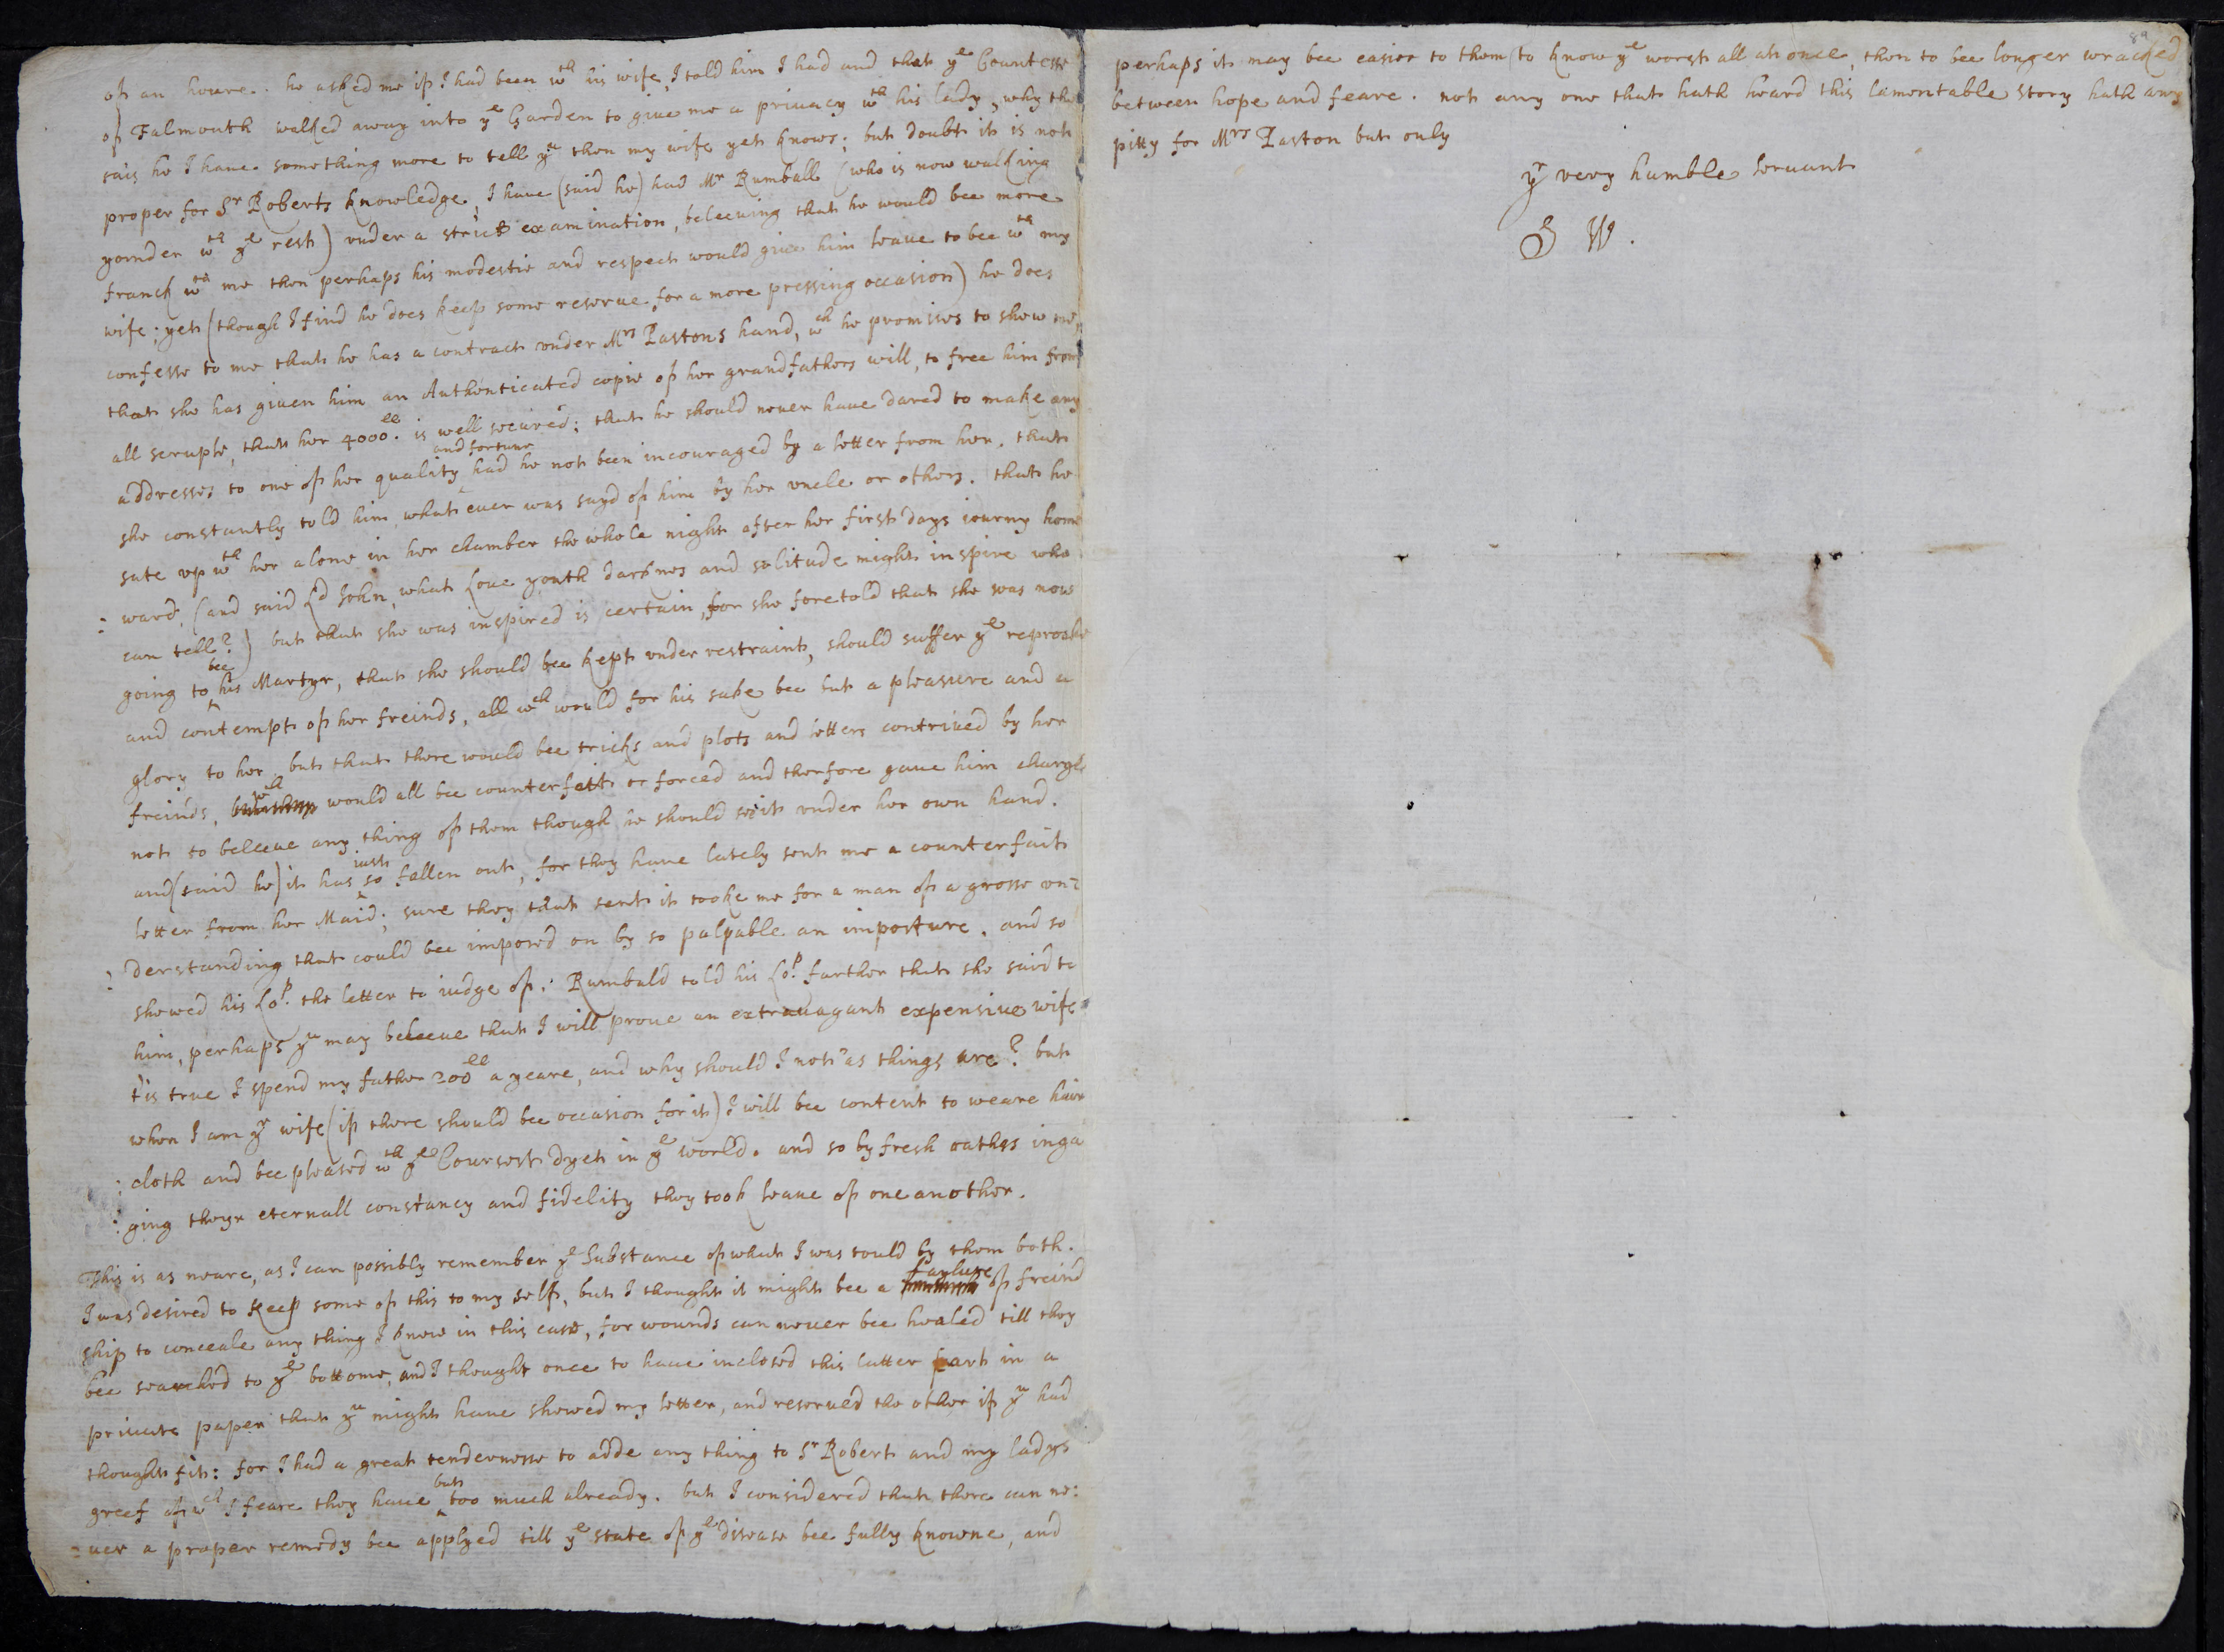 of an houre. he asked me if I had been wth his wife, I told him I had and that ye Countesse
of Falmouth walked away into ye Garden to giue me a priuacy wth his lady, why then
sais he I haue something more to tell yu then my wife yet knows; but doubt it is not
proper for Sr Roberts knowledge, I haue (said he) had Mr Rumball (who is now walking
yornder wth ye rest) vnder a strict examination, beleeuing that he would bee more
franck wth me then perhaps his modestie and respect would giue him leaue to bee wth my
wife; yet (though I find he does keep some reserue for a more pressing occasion) he does
confesse to me that he has a contract vnder Mrs Pastons hand, wch he promises to shew me,
that she has giuen him an Authenticated copie of her grandfathers will, to free him from
all scruple, that her 4000ll. is well secured; that he should neuer haue dared to make any
addresses to one of her quality and fortune had he not been incouraged by a letter from her. that
she constantly told him, what euer was sayd of him by her vncle or others. that he
sate vp wth her alone in her chamber the whole night after her first days iourny home
: ward, (and said Ld John, what Loue youth darknes and solitude might inspire who
can tell?) but that she was inspired is certain, for she foretold that she was now
going to bee his Martyr, that she should bee kept vnder restraint, should suffer ye reproach
and contempt of her freinds, all wch would for his sake bee but a pleasure and a
glory to her, but that there would bee tricks and plots and letters contriued by her
freinds, wch would all bee counterfeit or forced and therfore gaue him charge
not to beleeue any thing of them though he should see it vnder her own hand.
and (said he) it has iust so fallen out, for they haue lately sent me a counterfait
letter from her Maid; sure they that sent it tooke me for a man of a grosse vn=
: derstanding that could bee imposed on by so palpable an imposture. and so
showed his Lop. the letter to iudge of. Rumbald told his Lop. farther that she said to
him, perhaps yu may beleeue that I will proue an extrauagant expensiue wife
t'is true I spend my father 200ll a yeare, and why should I not as things are? but
when I am yr wife (if there should bee occasion for it) I will bee content to weare hair
: cloth and bee pleased wth ye Coursest dyet in ye world. and so by fresh oathes inga
: ging theyr eternall constancy and fidelity they took leaue of one another.
This is as neare, as I can possibly remember ye Substance of what I was tould by them both.
I was desired to keep some of this to my self, but I thought it might bee a faylure of freind
ship to conceale any thing I know in this case, for wounds can neuer bee healed till they
bee searched to ye bottome, and I thought once to haue inclosed this latter part in a
priuate paper that yu might haue showed my letter, and reserued the other if yu had
thought fit: for I had a great tendernesse to adde any thing to Sr Robert and my ladys
greef of wch I feare they haue but too much already. but I considered that there can ne:
=uer a proper remedy bee applyed till ye state of ye disease bee fully knowne, and
89
perhaps it may bee easier to them to know ye worst all at once, then to bee longer wracked
between hope and feare. not any one that hath heard this lamentable story hath any
pitty for Mrs Paston but only
yr very humble seruant
S W.